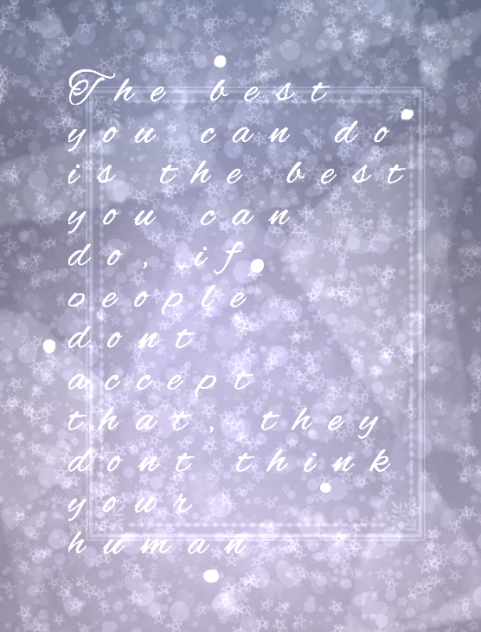 The best
you can do
is the best
you can
do, if
people
dont
accept
that, they
dont think
your
human